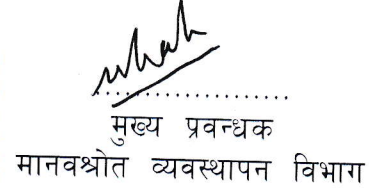 मुख्य प्रवन्धक
मानवश्रोत व्यवस्थापन विभाग